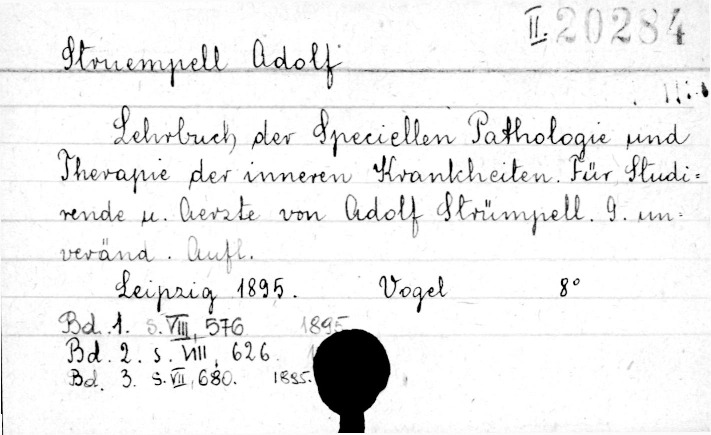 II. 20284
Struempell Adolf
Lehrbuch der Speciellen Pathologie und
Therapie der inneren Krankheiten. Für Studi-
rende u. Aerzte von Adolf Strümpell. 9. un-
veränd. Aufl.
Leipzig 1895. Vogel 8°
Bd. 1. s. VIII, 576 1895
Bd. 2. s. VIII, 626.
Bd. 3. s. VII, 680. 1895.